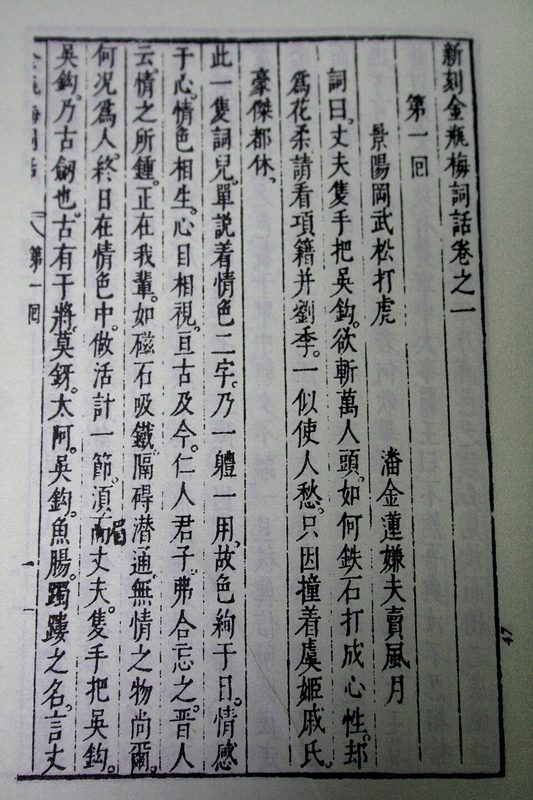 新刻金瓶梅詞話卷之一
第一回
景陽岡武松打虎
潘金蓮嫌夫賣風月
詞曰。丈夫隻手把吳鈎。欲斬萬人頭。如何鉄石打成心性。却
爲花柔請看項籍并劉季。一似使人愁。只因撞着虞姬戚氏。
豪傑都休。
此一隻詞兒。單説着情色二字。乃一體一用。故色絢于目。情感
于心。情色相生。心目相視。亘古及今。仁人君子。弗合忘之。晋人
云。情之所鍾。正在我輩。如磁石吸鐵。隔碍潜通。無情之物尚爾。
何况爲人。終日在情色中。做活計一節。須眉丈夫。隻手把吳鈎。
吳鈎。乃古劒也。古有干將。莫鋣。太阿。吳鈎。魚腸。躅䥲之名。言丈
第一回
47